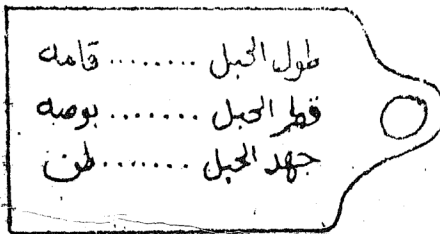 طول الحبل ........ قامه
قطر الحبل ....... بوصه
جهد الحبل ....... طن